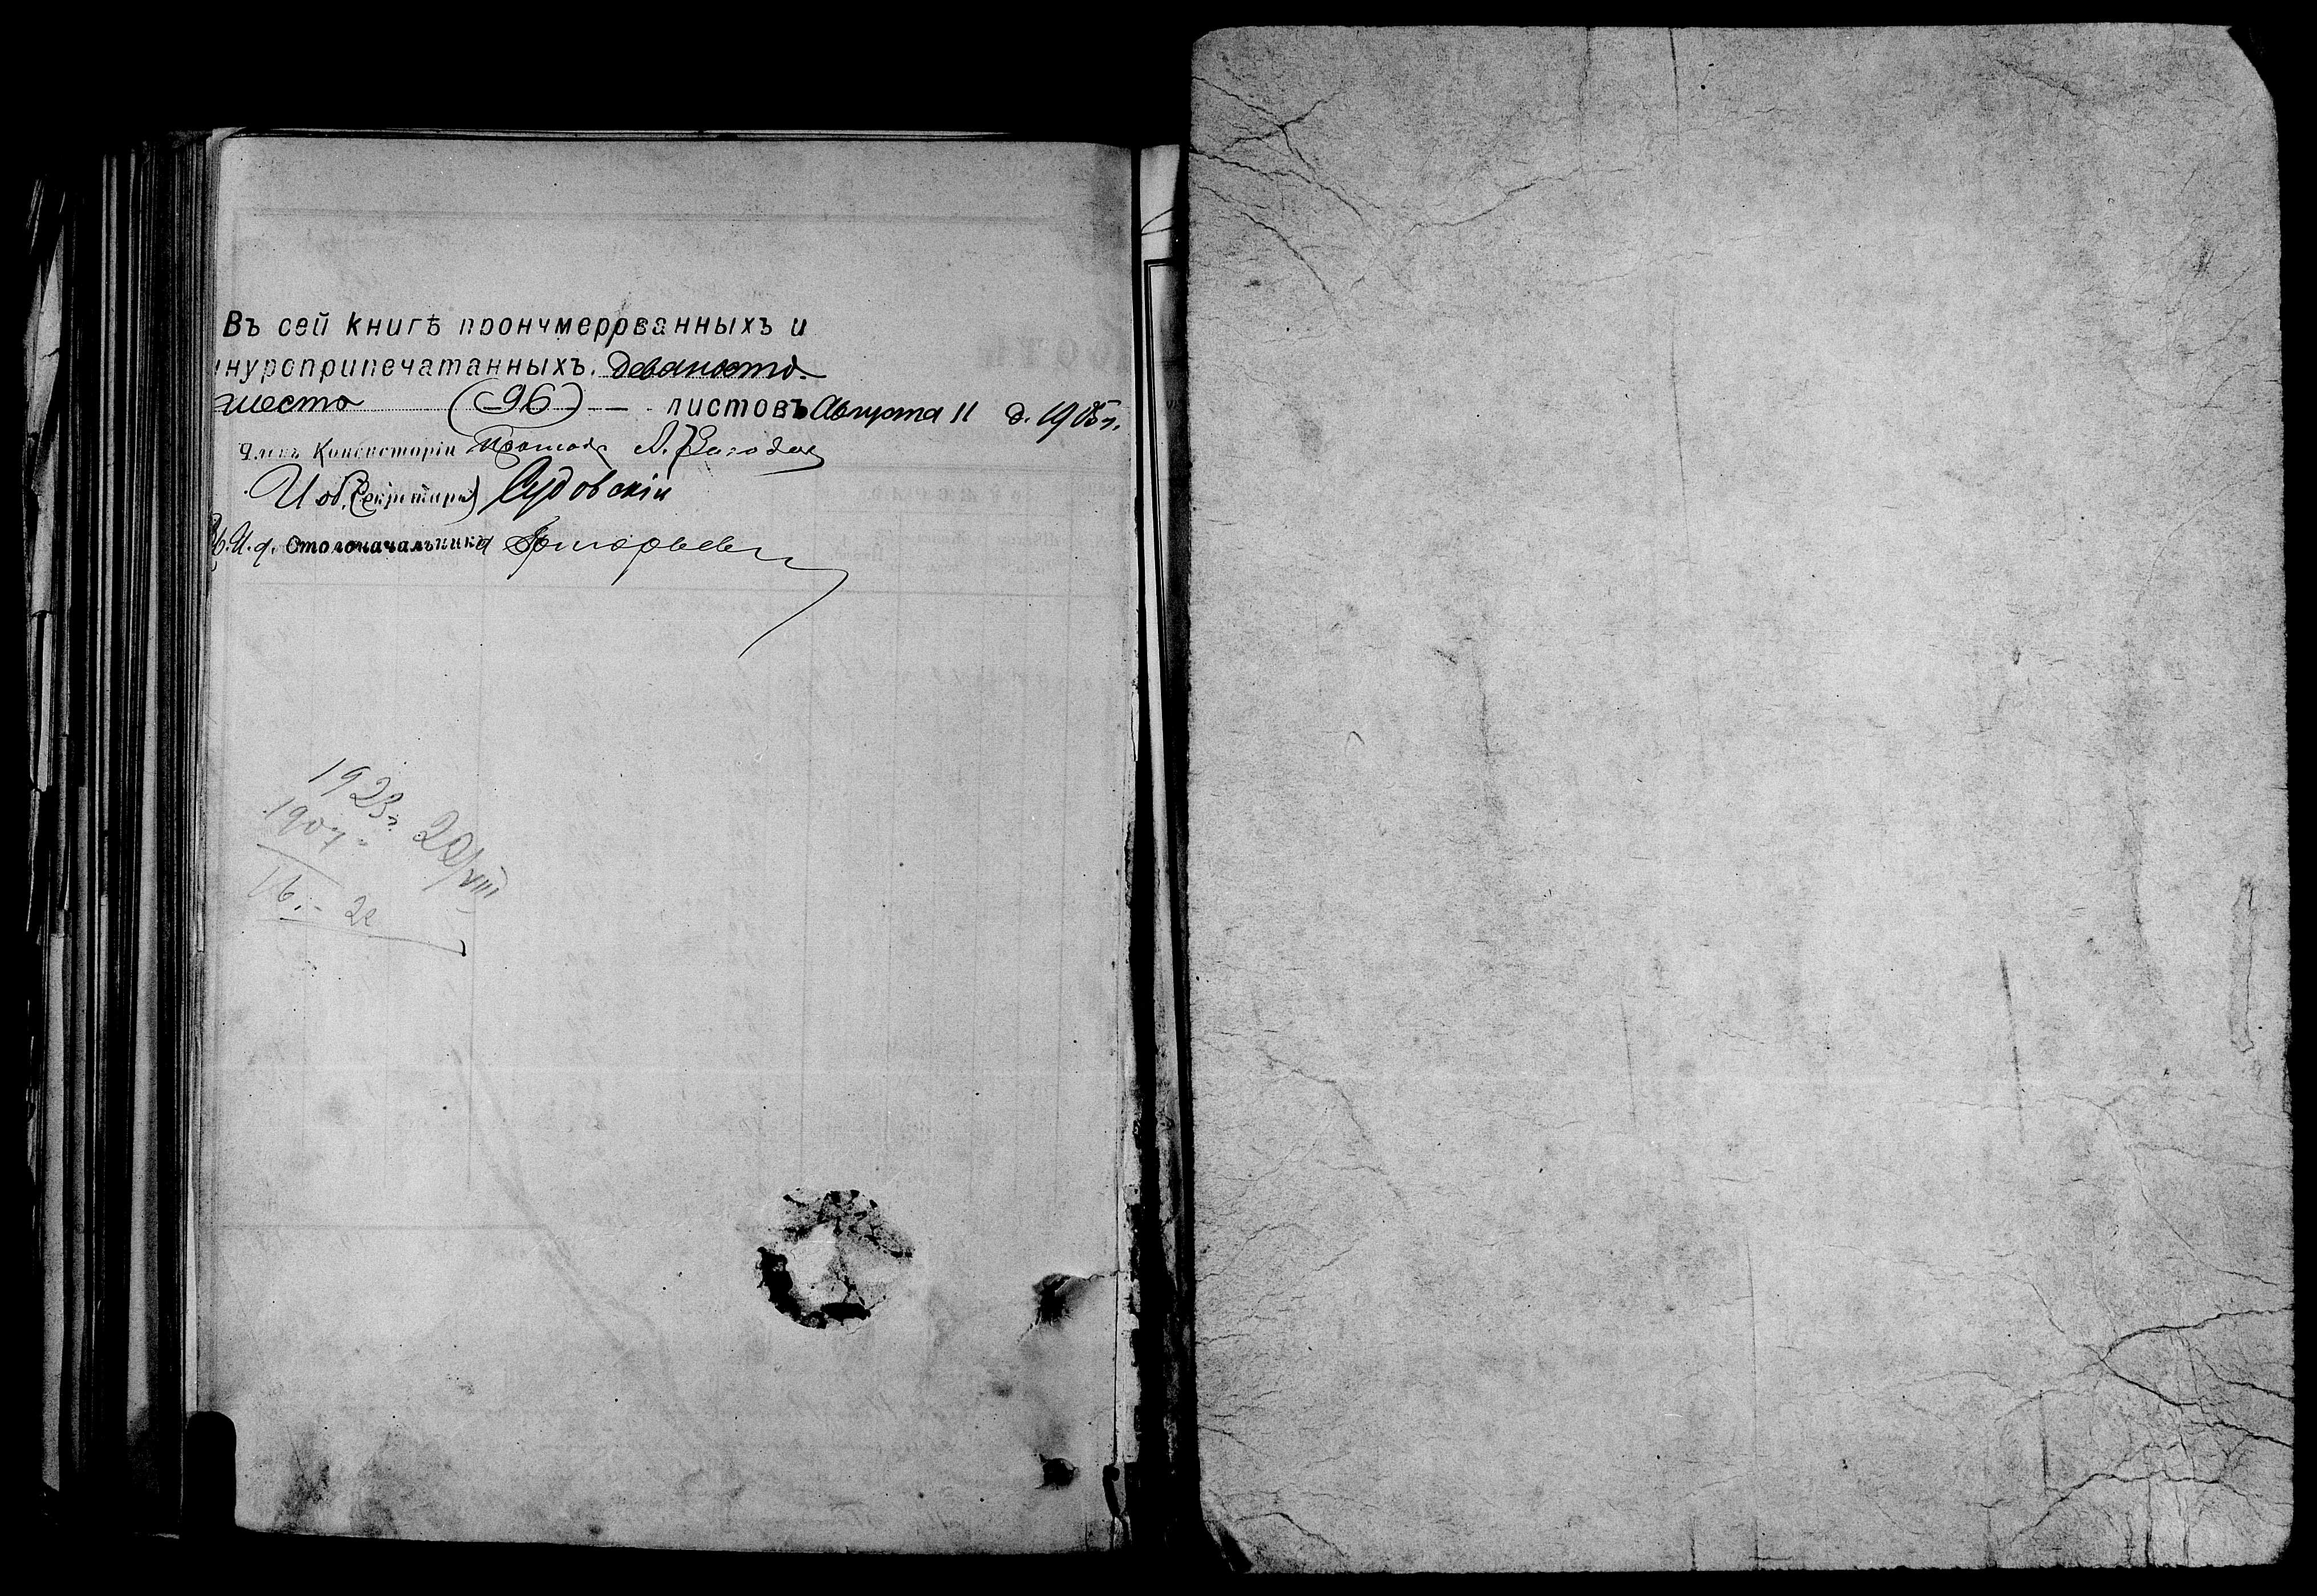 Въ сей книгѣ пронумерованныхъ и
нуроприпечатанныхъ девяносто
шесть (96) — листовъ Августа 11 д. 1905 г.
Членъ Консисторіи Протоіер. А.
И. об. (Секретаря) Судовскій
И. д. Столоначальника Григорьевъ
1923 г. 20/VIII
1907
16. - 22